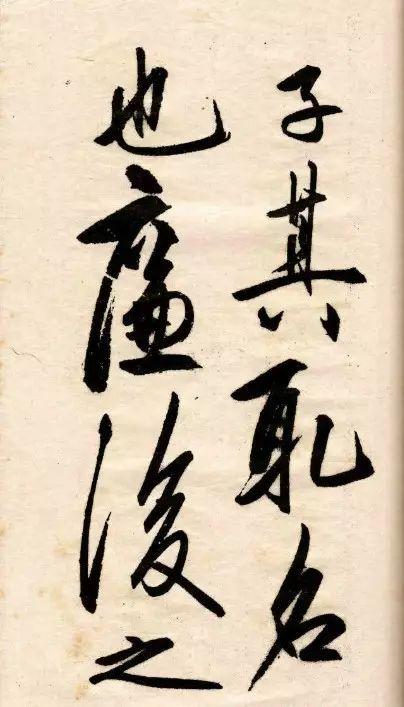 子其取名
也廉後之